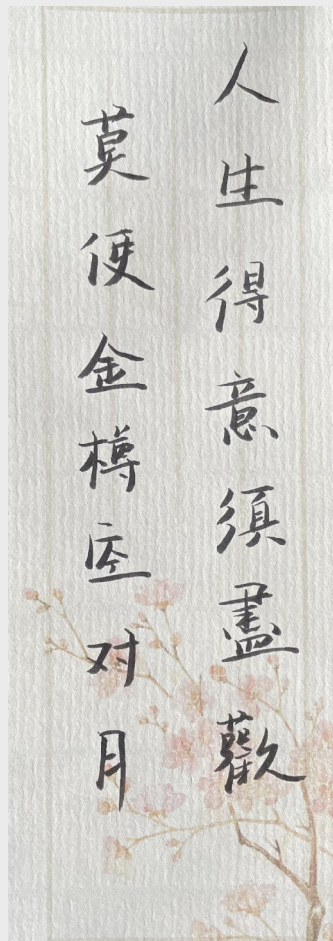 人生得意須盡歡
莫使金樽空对月